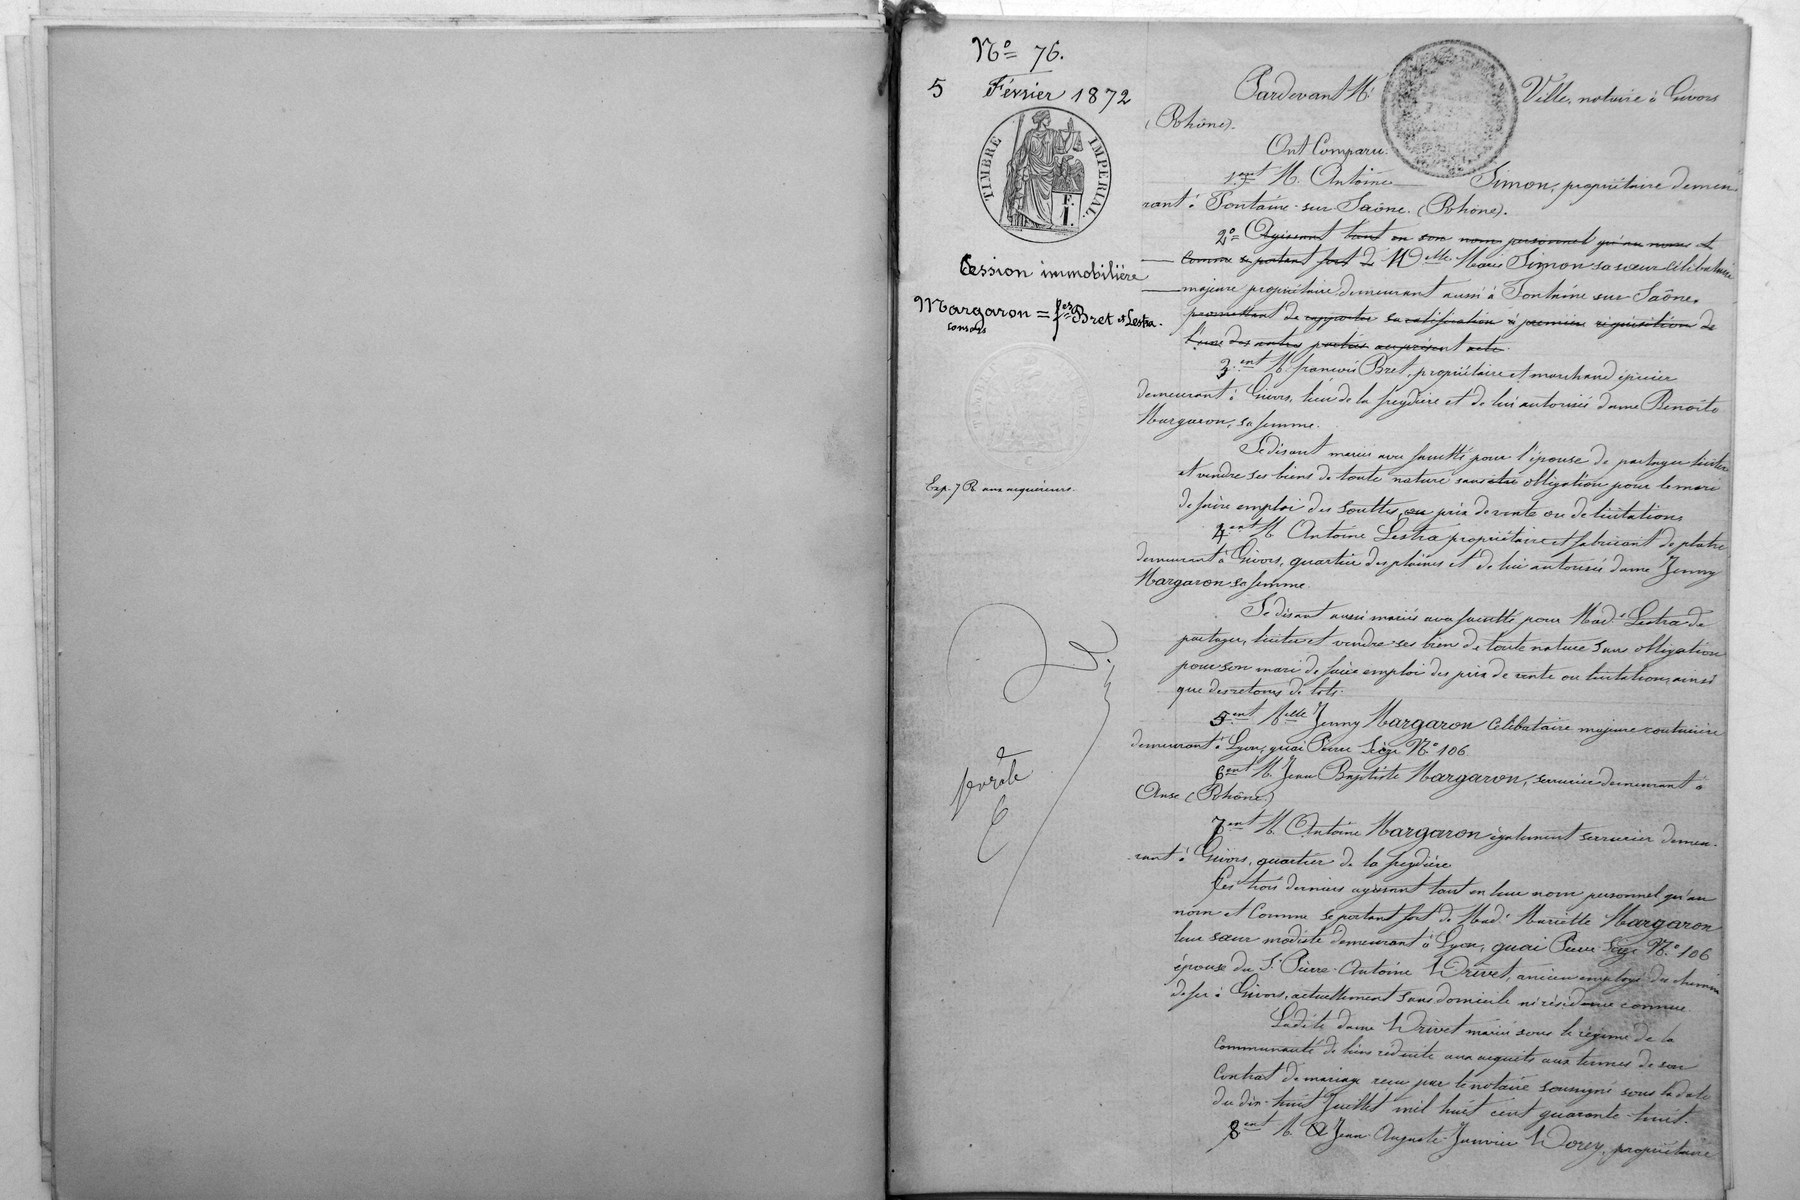 No 76.
5 Février 1872
TIMBRE IMPERIAL
F. 1.
Cession immobilière
Margaron = fes Bret et Lestra.
consorts
Exp. 7 R aux acquéreurs.
Pardevant Me Ville, notaire à Givors
(Rhône).
Ont Comparu
1ent M. Antoine Simon, propriétaire demeu
rant à Fontaine-sur-Saône. (Rhône).
2o Agissant tant en son nom personnel qu'au nom et
comme se portant fort de Melle Marie Simon sa sœur célibataire
majeure propriétaire demeurant aussi à Fontaine sur Saône.
promettant de rapporter sa ratification à première réquisition de
l'une des autres parties au présent acte.
3ent M. françois Bret, propriétaire et marchand épicier
demeurant à Givors, lieu de la freydière et de lui autorisée dame Benoîte
Margaron, sa femme.
Se disant mariés avec faculté pour l'épouse de partager liciter
et vendre ses biens de toute nature sans obligation pour le mari
de faire emploi des soultes, ou prix de vente ou de licitation.
4ent M Antoine Lestra propriétaire et fabricant de plâtre
demeurant à Givors, quartier des plaines et de lui autorisée dame Jenny
Margaron sa femme.
Se disant aussi mariés avec faculté pour Made Lestra de
partager, liciter et vendre ses bien de toute nature sans obligation
pour son mari de faire emploi des prix de vente ou licitation, ainsi
que des retours de lots.
5ent Melle Jenny Margaron Célibataire majeure couturière
demeurant à Lyon, quai Pierre Scize No 106
6ent M. Jean Baptiste Margaron, serrurier demeurant à
Anse (Rhône)
7ent M. Antoine Margaron également serrurier demeu-
rant à Givors, quartier de la freydière
Ces trois derniers agissant tant en leur nom personnel qu'au
nom et Comme se portant fort de Made Mariette Margaron
leur sœur modiste demeurant à Lyon, quai Pierre Scize No 106
épouse du Sr Pierre-Antoine Drivet, ancien employé du chemin
de fer à Givors, actuellement sans domicile ni résidence connue
Ladite dame Drivet mariée sous le régime de la
Communauté de biens réduite aux acquets aux termes de son
Contrat de mariage reçu par le notaire soussigné sous la date
du dix-huit Juillet mil huit cent quarante-huit.
8ent M. Jean-Auguste-Janvier Dorey, propriétaire